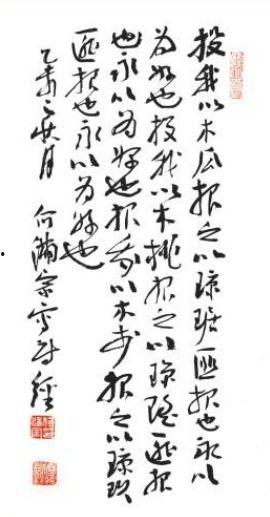 投我以木瓜报之以琼琚匪报也永以
为好也投我以木桃报之以琼瑶匪报
也永以为好也投我以木李报之以琼玖
匪报也永以为好也
乙未之月 何宗写诗经